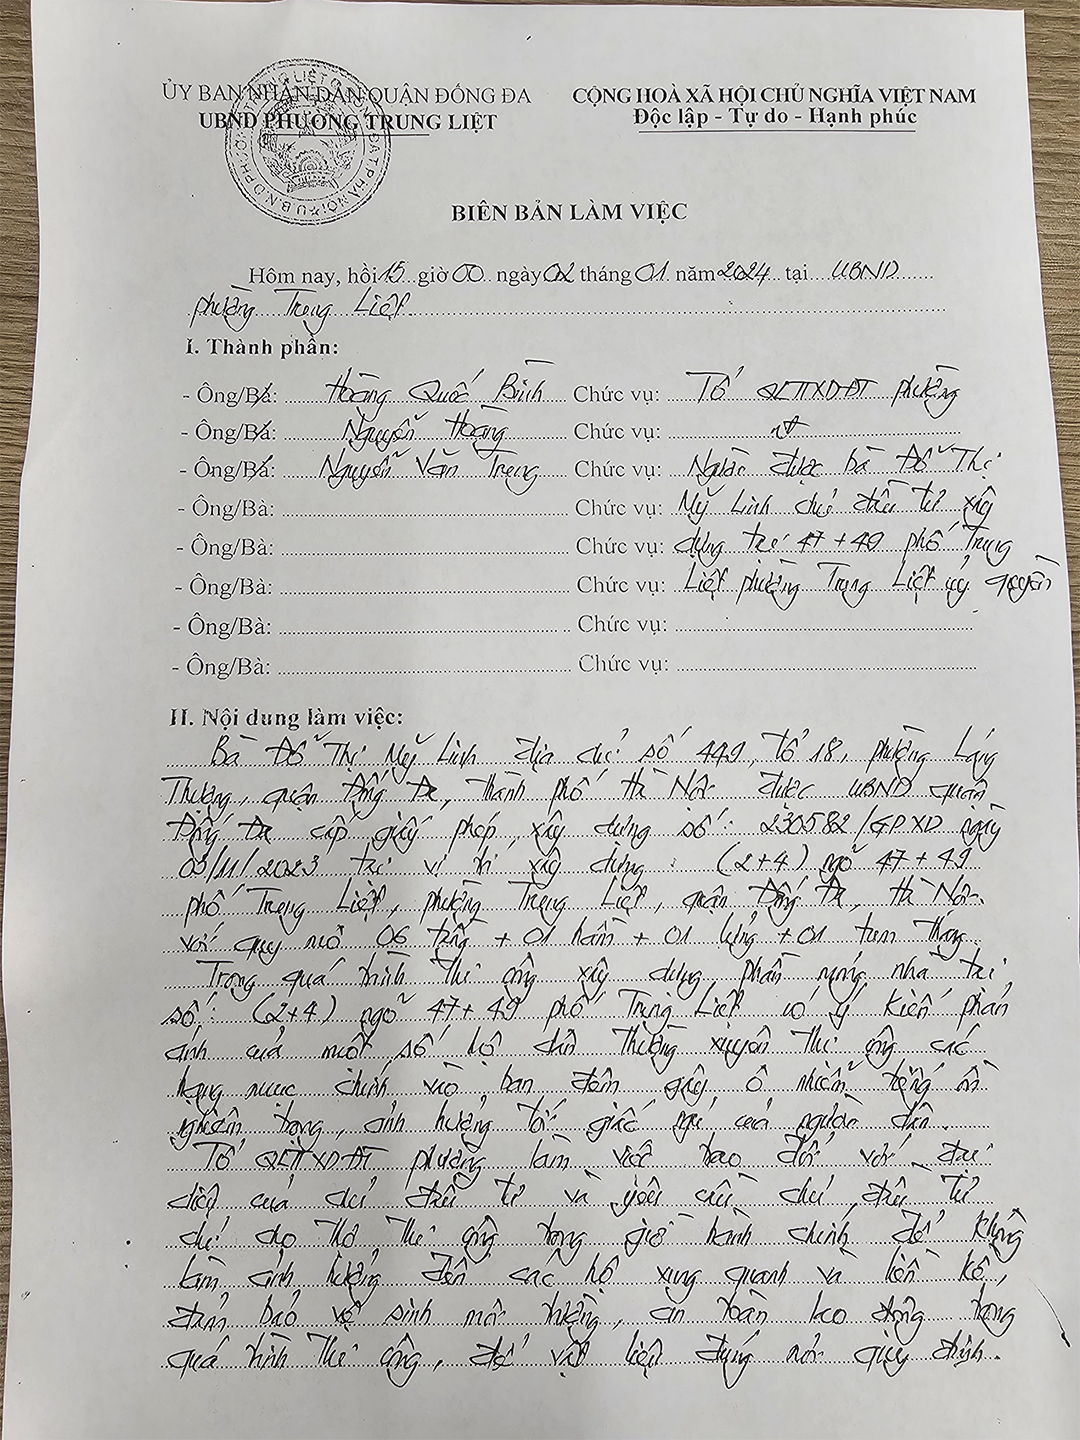 ỦY BAN NHÂN DÂN QUẬN ĐỐNG ĐA
UBND PHƯỜNG TRUNG LIỆT
CỘNG HOÀ XÃ HỘI CHỦ NGHĨA VIỆT NAM
Độc lập - Tự do - Hạnh phúc
BIÊN BẢN LÀM VIỆC
Hôm nay, hồi 15 giờ 00 ngày 02 tháng 01 năm 2024 tại UBND
phường Trung Liệt.
I. Thành phần:
- Ông/Bà: Hoàng Quốc Bình Chức vụ: Tổ QLTTXDĐT phường
- Ông/Bà: Nguyễn Hoàng Chức vụ: nt
- Ông/Bà: Nguyễn Văn Trung Chức vụ: Người được bà Đỗ Thị
- Ông/Bà: Chức vụ: Mỹ Linh chủ đầu tư xây
- Ông/Bà: Chức vụ: dựng tại 47+49 phố Trung
- Ông/Bà: Chức vụ: Liệt phường Trung Liệt uỷ quyền
- Ông/Bà: Chức vụ:
- Ông/Bà: Chức vụ:
II. Nội dung làm việc:
Bà Đỗ Thị Mỹ Linh địa chỉ số 449, tổ 18, phường Láng
Thượng, quận Đống Đa, thành phố Hà Nội được UBND quận
Đống Đa cấp giấy phép xây dựng số: 230582/GPXD ngày
03/11/2023 tại vị trí xây dựng: (2+4) ngõ 47+49
phố Trung Liệt, phường Trung Liệt, quận Đống Đa, Hà Nội.
với quy mô 06 tầng + 01 hầm + 01 lửng + 01 tum thang.
Trong quá trình thi công xây dựng phần móng nhà tại
số: (2+4) ngõ 47+49 phố Trung Liệt có ý kiến phản
ánh của một số hộ dân thường xuyên thi công các
hạng mục chính vào ban đêm gây ô nhiễm tiếng ồn
nghiêm trọng, ảnh hưởng tới giấc ngủ của người dân.
Tổ QLTTXDĐT phường làm việc trao đổi với đại
diện của chủ đầu tư và yêu cầu chủ đầu tư
chỉ cho thợ thi công trong giờ hành chính để không
làm ảnh hưởng đến các hộ xung quanh và liền kề,
đảm bảo vệ sinh môi trường, an toàn lao động trong
quá trình thi công, đổ vật liệu đúng nơi quy định.